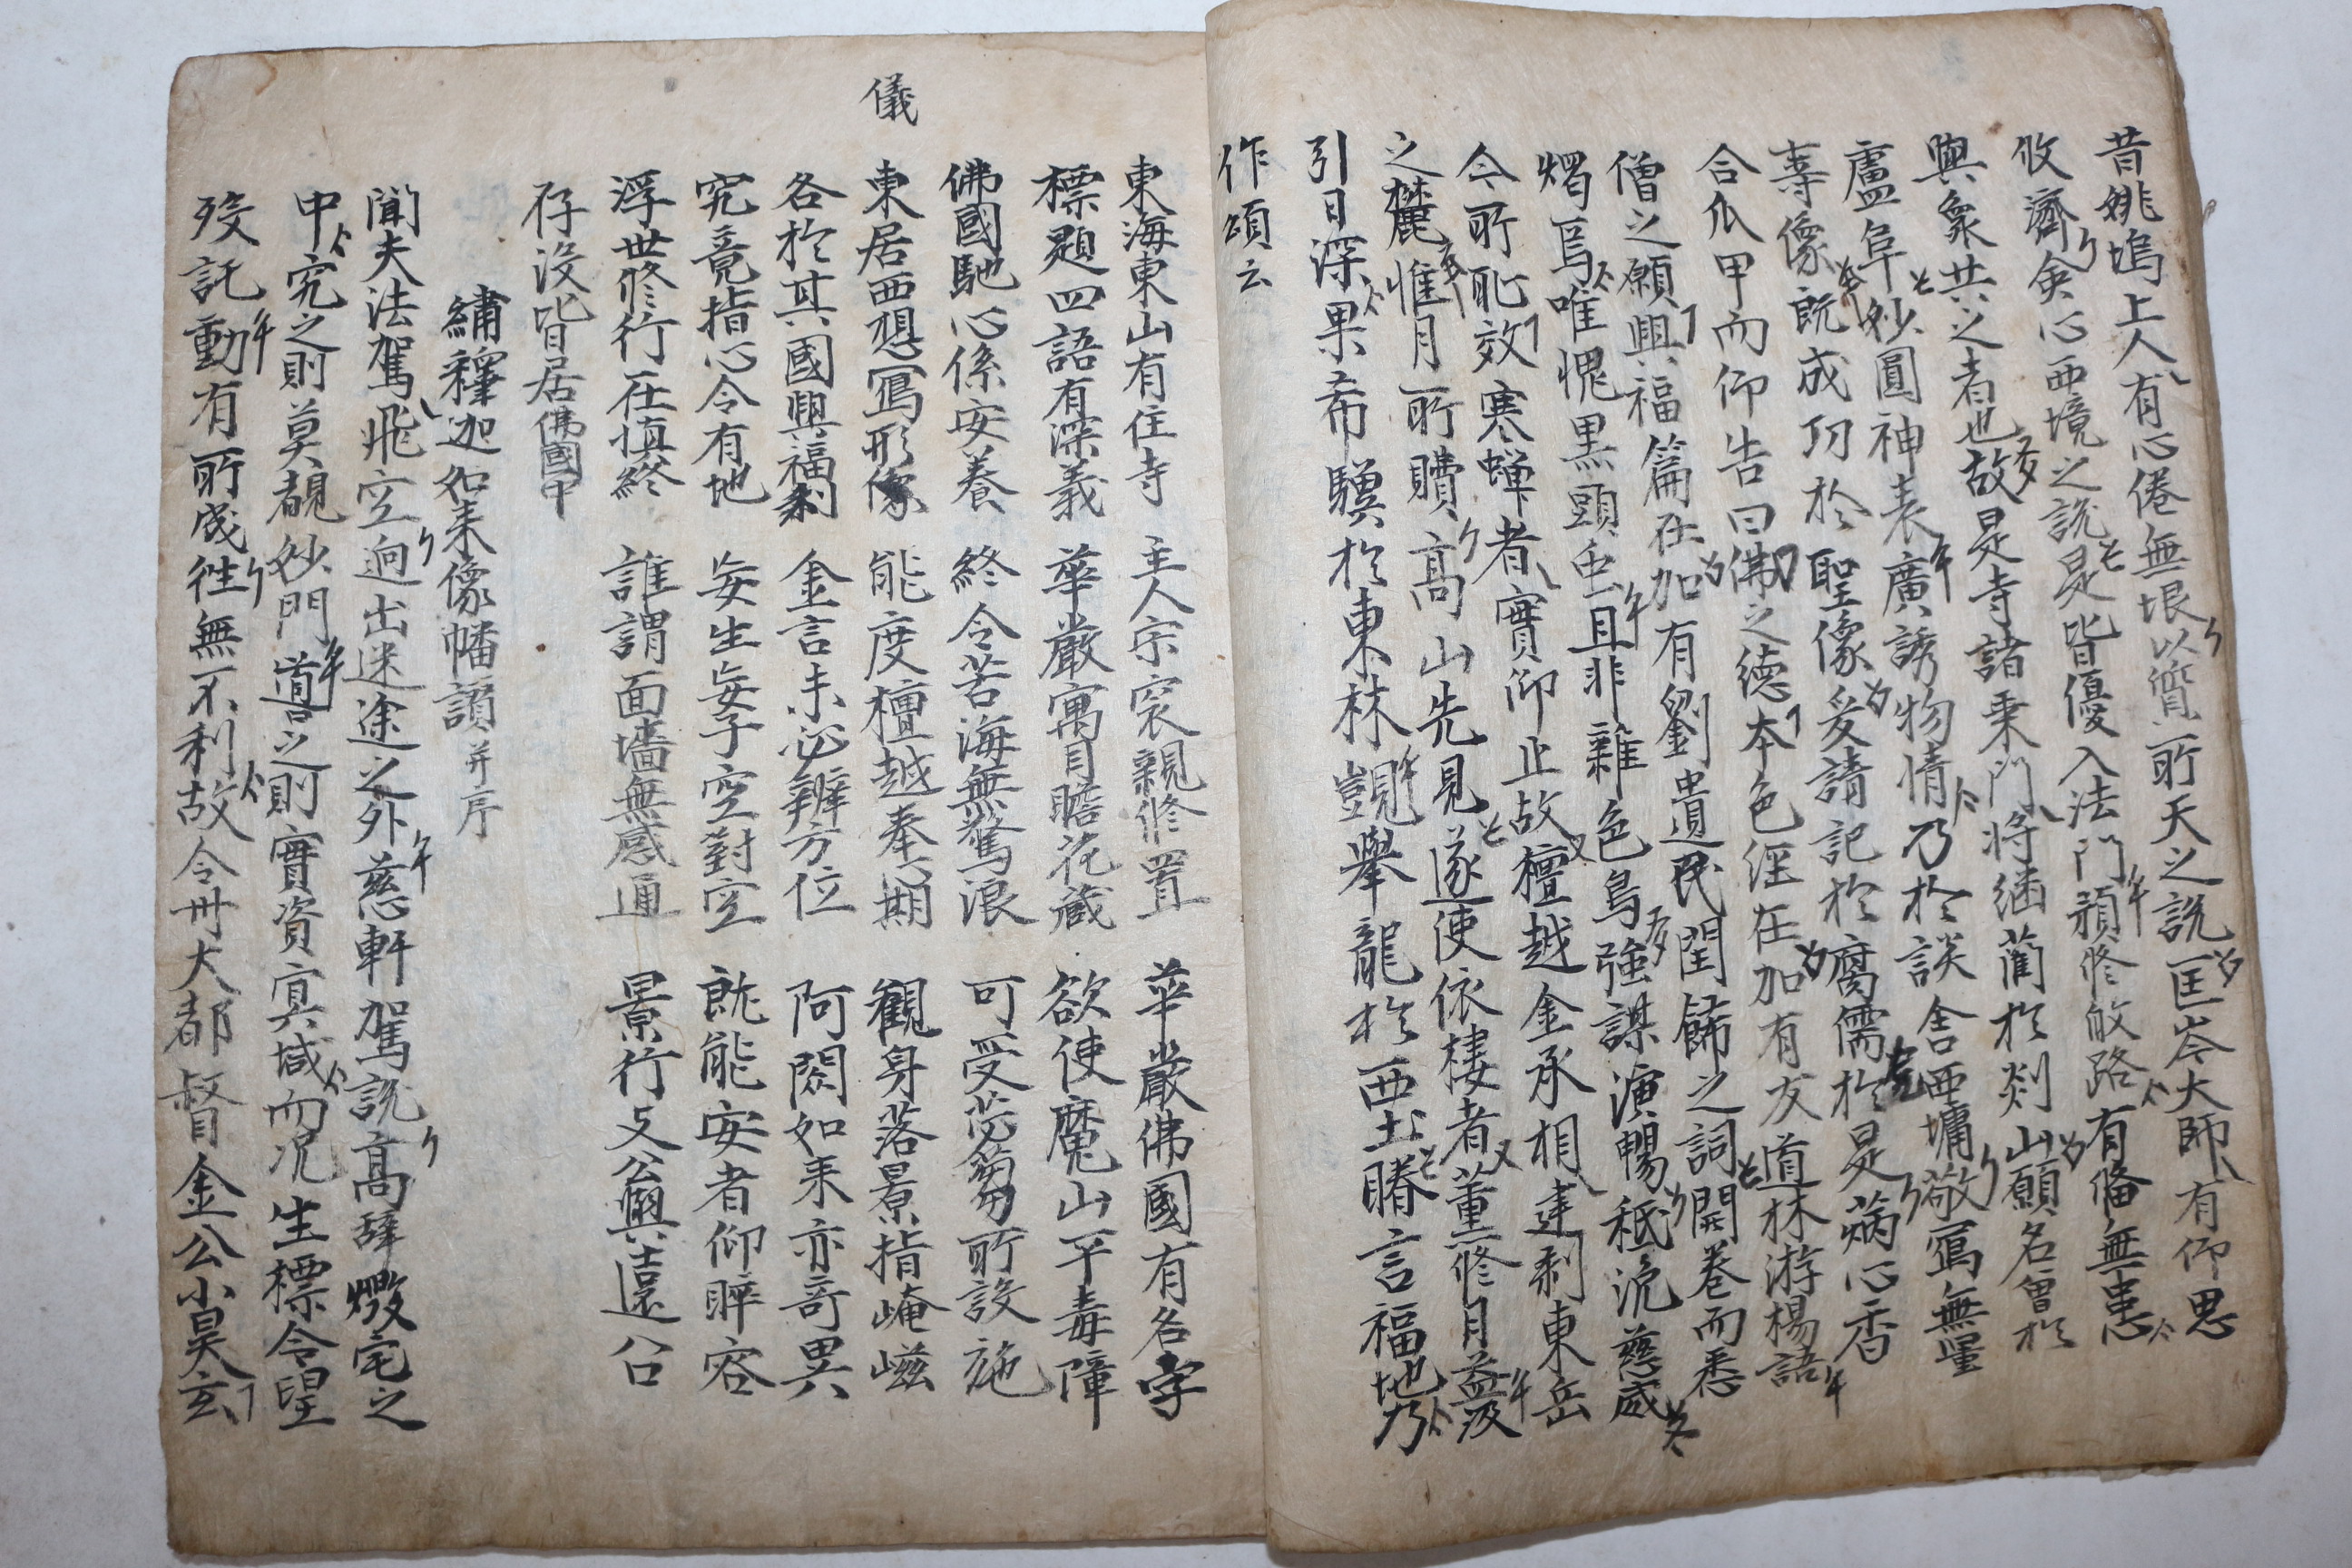 昔姚塢上人有心倦無垠以筫所天之說匡岑大師有仰思
攸濟矣心西境之說是皆優入法門䫙修皎路有俻無患
與衆共之者也故是寺諸乘門將緬藺於剡山願名曾於
廬阜紗圓神表廣誘物情乃於談舍西墉敬寫無量
壽像旣成功於聖像爰請記於腐儒於是爇心香
合爪甲而仰告曰佛之德本色經在加有友道林游楊語
僧之願興福篇在加有劉遺民閏餙之詞開卷而悉
燭焉唯愧黑頭虫且非雜色鳥強謀演暢秪況慈威
今所耻效寒蟬者實仰止故檀越金承相建刹東岳
之麓惟月所瞔高山先見遂使依棲者薰修月益汲
引日深果希驥於東林覬攀龍於西土睠言福地乃
作頌云
儀
東海東山有住寺 主人宗袞親修置 華嚴佛國有名字
標題四語有深義 華嚴寓目瞻花藏 欲使魔山平毒障
佛國馳心係安養 終令苦海無驚浪 可受苾蒭所設施
東居西想寫形像 能度檀越奉心期 觀身落景指崦嵫
各於其國興福利 金言未必辨方位 阿閦如来亦奇異
究竟指心令有地 妄生妄字空對空 旣能安者仰睟容
浮世修行在愼終 誰謂面墻無感通 景行支公與遠公
存沒皆居佛國中
繡釋迦如来像幡讃并序
聞夫法駕飛空逈出迷途之外慈軒駕說高辞燬宅之
中究之則莫覩妙門道之則實資㝠域而況生標令望
歿託動有所成徃無不利故令卅大都督金公小昊玄